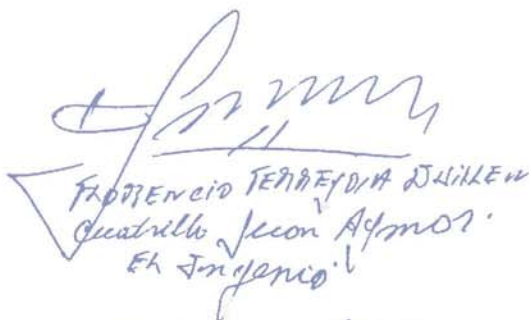 FLORENCIO FERREYRA GUILLEN
Cuatrillo Juan Aymor.
El Ingenio